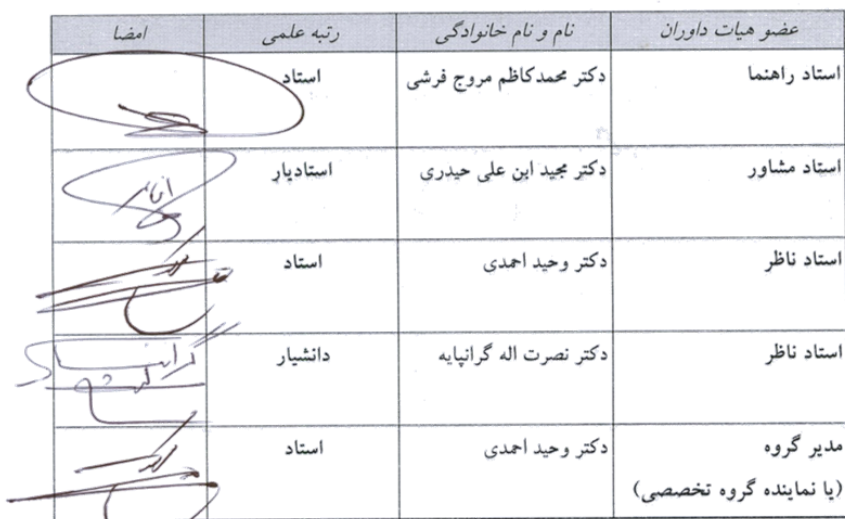 عضو هیات داوران نام و نام خانوادگی رتبه علمی امضا
استاد راهنما دکتر محمدکاظم مروج فرشی استاد
استاد مشاور دکتر مجید ابن علی حیدری استادیار
استاد ناظر دکتر وحید احمدی استاد
استاد ناظر دکتر نصرت اله گرانپایه دانشیار
مدیر گروه دکتر وحید احمدی استاد
(یا نماینده گروه تخصصی)